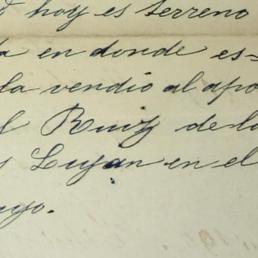 hoy es terreno
en donde es-
la vendió al apo
Ruiz de la
Lujan en el